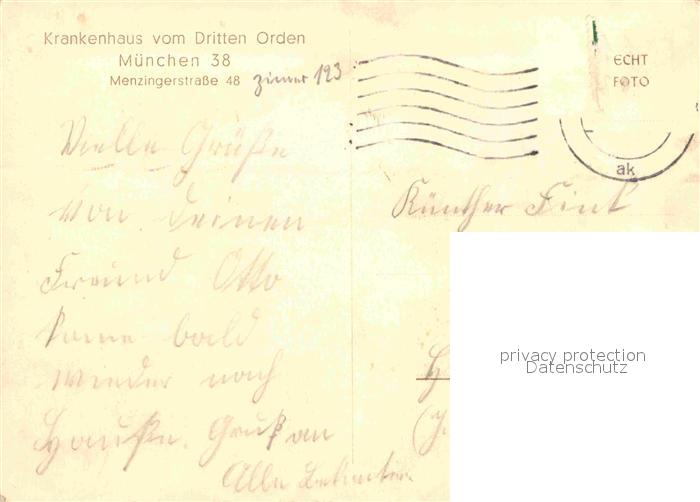 Krankenhaus vom Dritten Orden
München 38
Menzingerstraße 48 Zimmer 193
ECHT
FOTO
ak
Vielle Grüße
von deinen
Freund Otto
kome bald
wieder nach
Hauße. Gruß an
Alle Bekanten
Künther Fink
privacy protection
Datenschutz